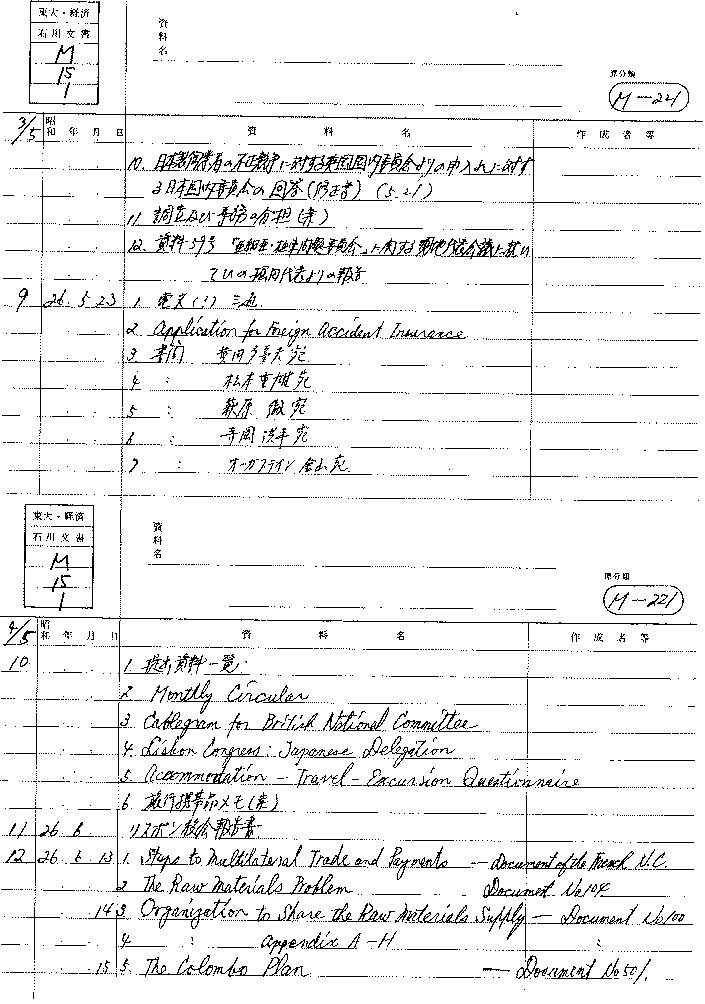 東大・経済
石川文書
M
15
1
資料名
原分類
M-221
3/5
昭和 年 月 日 資料名 作成者等
10. 日本製偽 者の不正競争に対する英国国内委員会よりの申入れに対す
る日本国内委員会の回答(修正書) (5.21)
11 調査及び事務の分担(案)
12. 資料59号 に関する 代表会議に於い
ての 代表よりの報告
9 26 5 23 1 電文(?) 三通
2 Application for Foreign Accident Insurance
3 書簡 宛
4 : 松本重雄宛
5 : 萩原 徹宛
6 : 寺岡洪平宛
7 : オーガスティン 金山宛
東大・経済
石川文書
M
15
1
資料名
原分類
M-221
4/5
昭和 年 月 日 資料名 作成者等
10 1. 提出資料一覧
2 Monthly Circular
3 Cablegram for British National Committee
4. Lisbon Congress: Japanese Delegation
5. Accommodation - Travel - Excursion Questionnaire
6 旅行携帯品メモ(案)
11 26 6 リスボン総会報告書
12 26 6 13 1. Steps to Multilateral Trade and Payments — Document of the French N.C.
2 The Raw Materials Problem Document No 104
14 3. Organization to Share the Raw Materials Supply — Document No 100
4 : Appendix A-H :
15 5. The Colombo Plan — Document No 501.